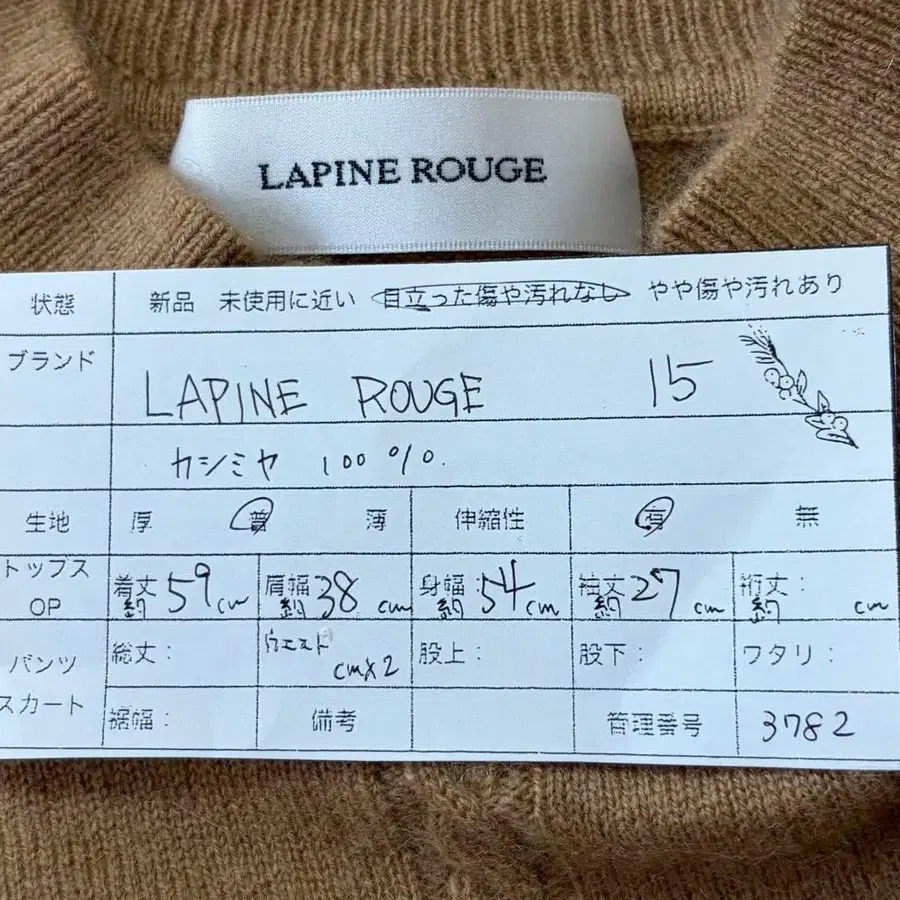 LAPINE ROUGE
状態 新品 未使用に近い 目立った傷や汚れなし やや傷や汚れあり
ブランド LAPINE ROUGE 15
カシミヤ 100%.
生地 厚 普 薄 伸縮性 有 無
トップス OP 着丈 約 59 cm 肩幅 約 38 cm 身幅: 約 54 cm 袖丈 約 27 cm 裄丈: 約 cm
パンツ 総丈: ウエスト cm×2 股上: 股下: ワタリ:
スカート 裾幅: 備考 管理番号 3782